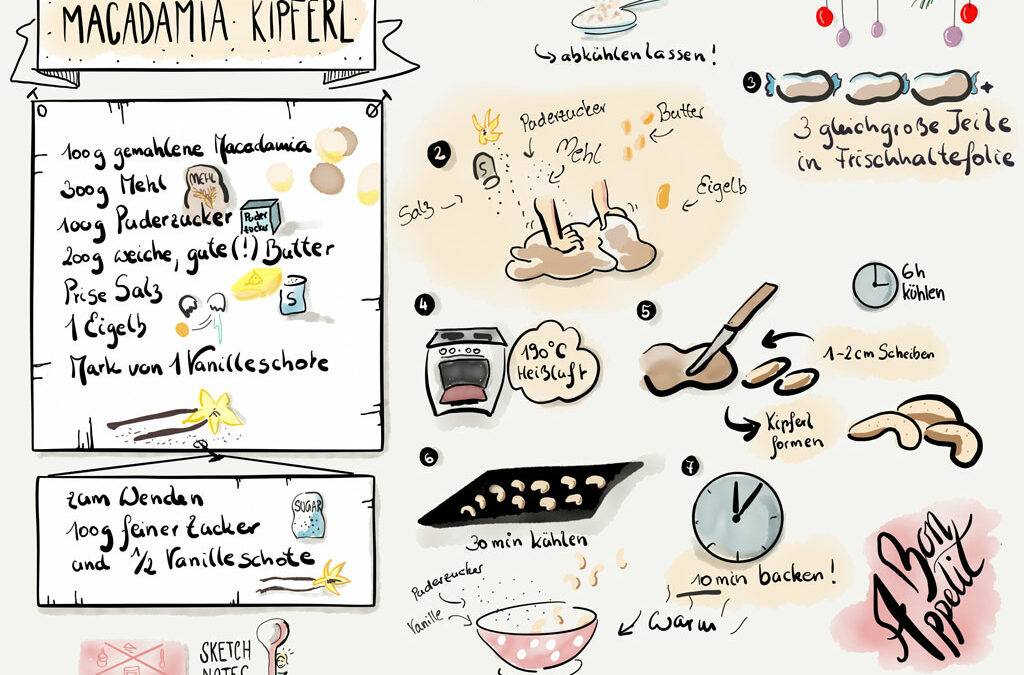 MACADAMIA KIPFERL
100g gemahlene Macadamia
300g Mehl
MEHL
100g Puderzucker
Puder
zucker
200g weiche, gute(!) Butter
Prise Salz
S
1 Eigelb
Mark von 1 Vanilleschote
zum Wenden
100g feiner Zucker
und 1/2 Vanilleschote
SUGAR
SKETCH
NOTES
abkühlen lassen!
2
Puderzucker
Mehl
Butter
S
Salz
Eigelb
3
+
3 gleichgroße Teile
in Frischhaltefolie
6h
kühlen
4
190°C
Heißluft
5
1-2cm Scheiben
Kipferl
formen
6
30 min kühlen
7
10 min backen!
Puderzucker
Vanille
warm!
Bon
Appetit